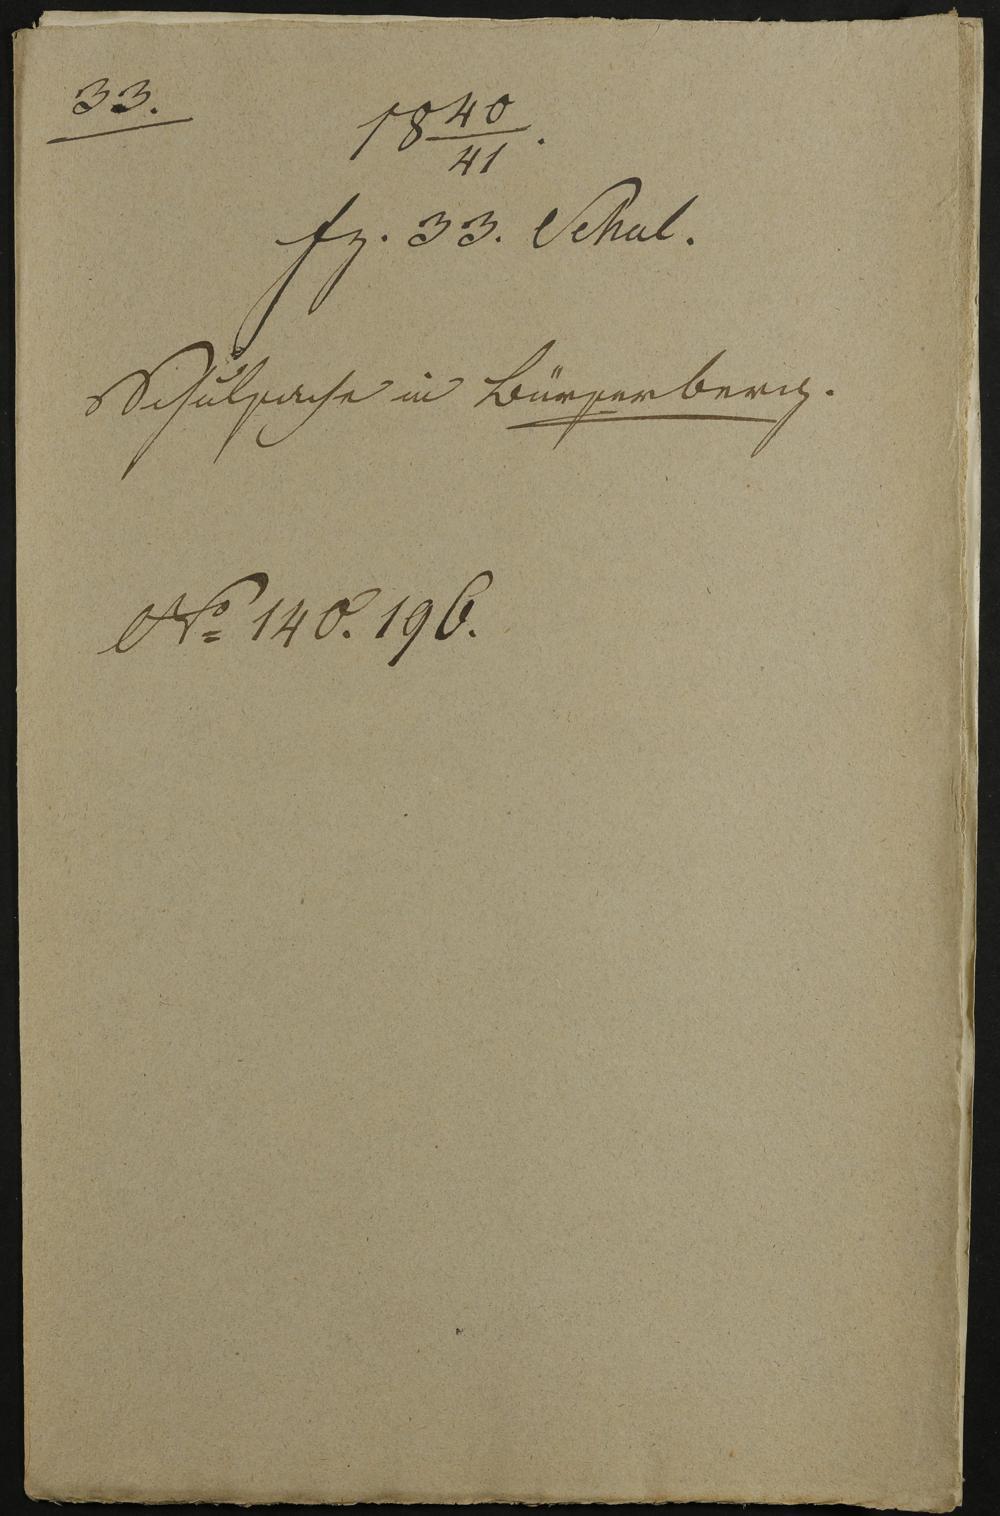 33.
18 40/41.
fz. 33. Schul.
Schulsache in Bürserberg.
No 140. 196.